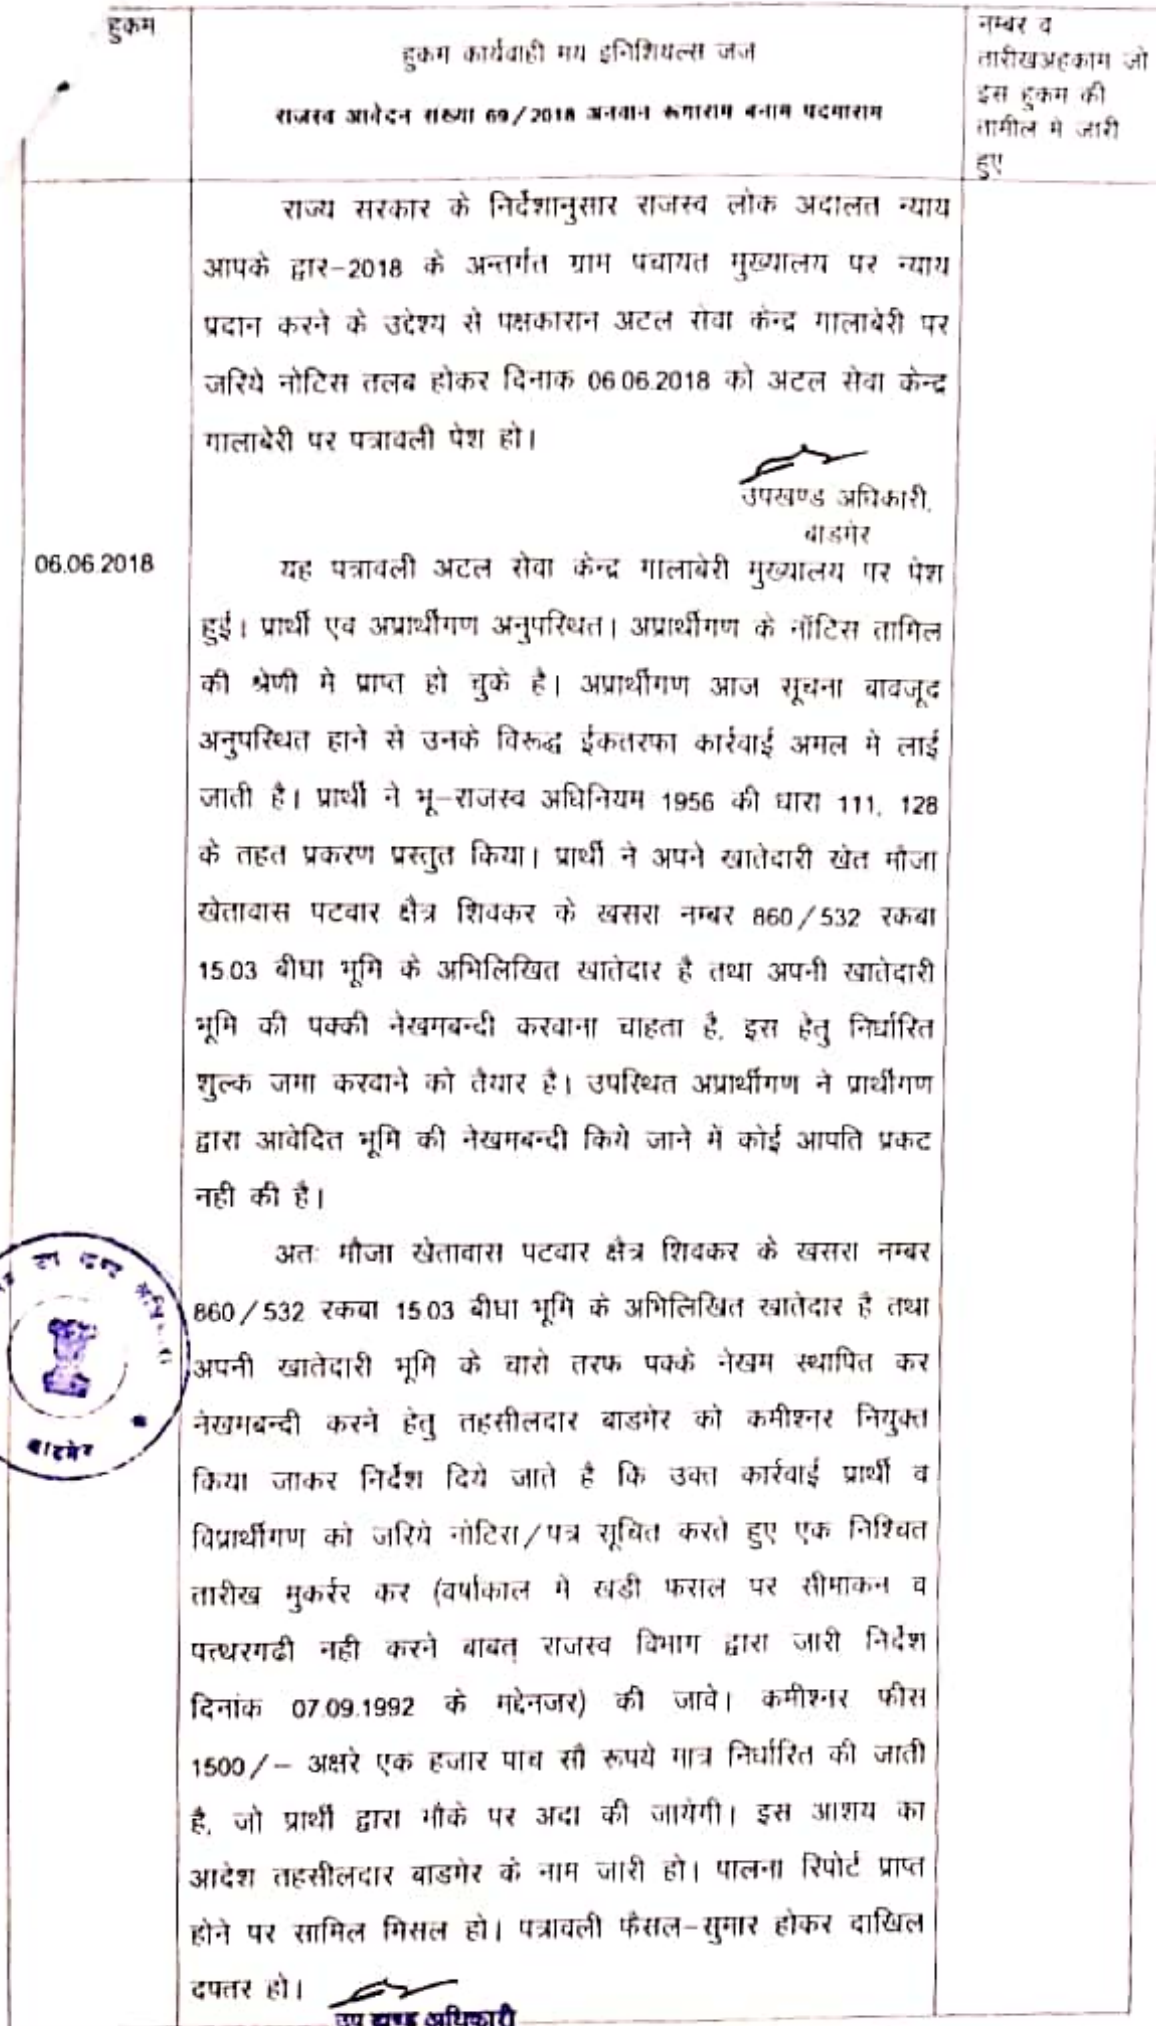 हुकम
हुकम कार्यवाही मय इनिशियल्स जज
राजस्व आवेदन संख्या 69/2018 अनवान रूगाराम बनाम पदमाराम
नम्बर व
तारीखअहकाम जो
इस हुकम की
तामील मे जारी
हुए
राज्य सरकार के निर्देशानुसार राजस्व लोक अदालत न्याय
आपके द्वार-2018 के अन्तर्गत ग्राम पंचायत मुख्यालय पर न्याय
प्रदान करने के उद्देश्य से पक्षकारान अटल सेवा केन्द्र गालाबेरी पर
जरिये नोटिस तलब होकर दिनाक 06.06.2018 को अटल सेवा केन्द्र
गालाबेरी पर पत्रावली पेश हो।
उपखण्ड अधिकारी,
बाडमेर
06.06.2018
यह पत्रावली अटल सेवा केन्द्र गालाबेरी मुख्यालय पर पेश
हुई। प्रार्थी एव अप्रार्थीगण अनुपस्थित। अप्रार्थीगण के नॉटिस तामिल
की श्रेणी मे प्राप्त हो चुके है। अप्रार्थीगण आज सूचना बावजूद
अनुपस्थित हाने से उनके विरूद्ध ईकतरफा कार्रवाई अमल मे लाई
जाती है। प्रार्थी ने भू-राजस्व अधिनियम 1956 की धारा 111, 128
के तहत प्रकरण प्रस्तुत किया। प्रार्थी ने अपने खातेदारी खेत मौजा
खेतावास पटवार क्षैत्र शिवकर के खसरा नम्बर 860/532 रकबा
15.03 बीघा भूमि के अभिलिखित खातेदार है तथा अपनी खातेदारी
भूमि की पक्की नेखमबन्दी करवाना चाहता है, इस हेतु निर्धारित
शुल्क जमा करवाने को तैयार है। उपस्थित अप्रार्थीगण ने प्रार्थीगण
द्वारा आवेदित भूमि की नेखमबन्दी किये जाने में कोई आपति प्रकट
नही की है।
अतः मौजा खेतावास पटवार क्षैत्र शिवकर के खसरा नम्बर
860/532 रकबा 15.03 बीघा भूमि के अभिलिखित खातेदार है तथा
अपनी खातेदारी भूमि के चारो तरफ पक्के नेखम स्थापित कर
नेखमबन्दी करने हेतु तहसीलदार बाडमेर को कमीश्नर नियुक्त
किया जाकर निर्देश दिये जाते है कि उक्त कार्रवाई प्रार्थी व
विप्रार्थीगण को जरिये नोटिस/पत्र सूचित करते हुए एक निश्चित
तारीख मुकर्रर कर (वर्षाकाल मे खडी फसल पर सीमाकन व
पत्थरगढी नही करने बाबत् राजस्व विभाग द्वारा जारी निर्देश
दिनांक 07.09.1992 के मद्देनजर) की जावे। कमीश्नर फीस
1500/- अक्षरे एक हजार पाच सौ रूपये मात्र निर्धारित की जाती
है, जो प्रार्थी द्वारा मौके पर अदा की जायेगी। इस आशय का
आदेश तहसीलदार बाडमेर के नाम जारी हो। पालना रिपोर्ट प्राप्त
होने पर सामिल मिसल हो। पत्रावली फैसल-सुमार होकर दाखिल
दफ्तर हो।
उप खण्ड अधिकारी
बाडमेर